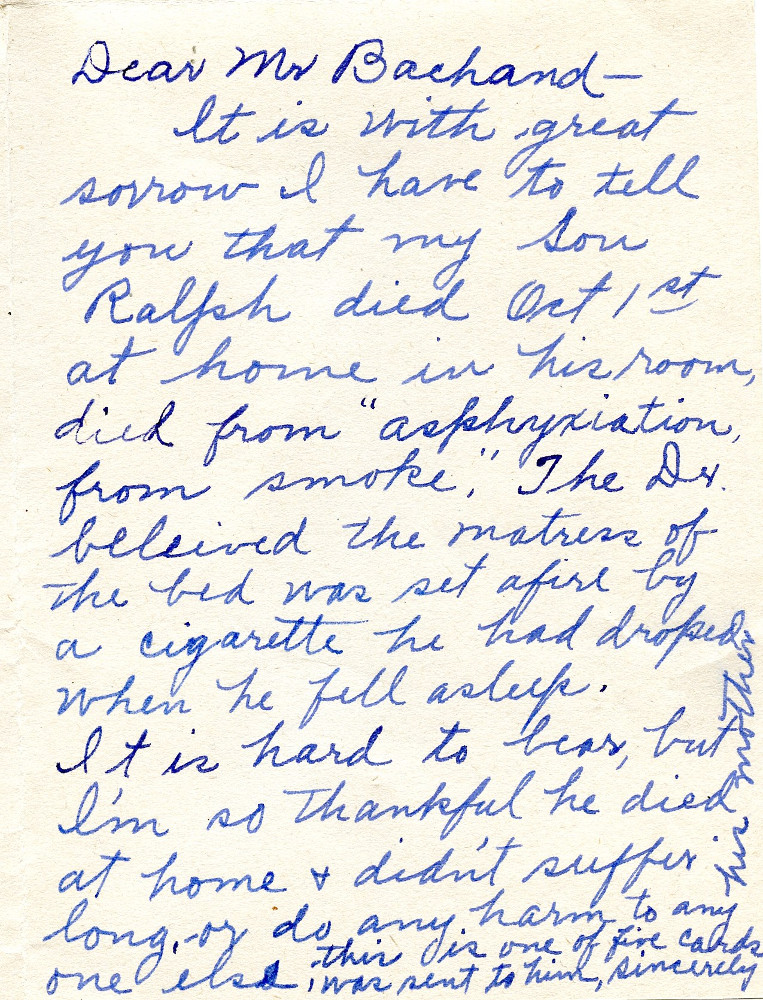 Dear Mr Bachand—
It is with great
sorrow I have to tell
you that my Son
Ralph died Oct 1st
at home in his room,
died from "asphyxiation,
from smoke,". The Dr.
beleived the matress of
the bed was set afire by
a cigarette he had droped
when he fell asleep.
It is hard to bear, but
I'm so thankful he died
at home & didn't suffer
long, or do any harm to any
one else; this is one of five cards
was sent to him, sincerely
his mother